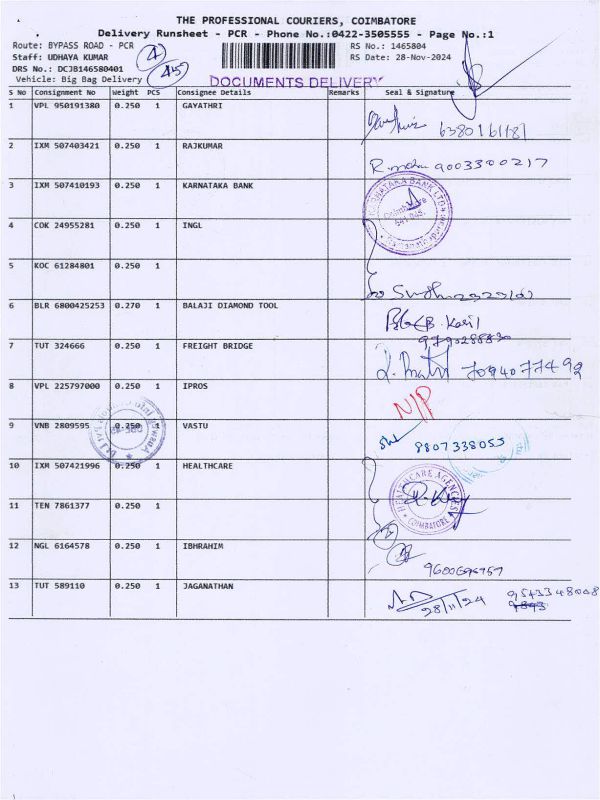 THE PROFESSIONAL COURIERS, COIMBATORE
Delivery Runsheet - PCR - Phone No.:0422-3505555 - Page No.:1
Route: BYPASS ROAD - PCR
RS No.: 1465804
Staff: UDHAYA KUMAR
RS Date: 28-Nov-2024
DRS No.: DCJB146580401
Vehicle: Big Bag Delivery
4
45
DOCUMENTS DELIVERY
S No Consignment No Weight PCS Consignee Details Remarks Seal & Signature
1 VPL 950191380 0.250 1 GAYATHRI
6380161181
2 IXM 507403421 0.250 1 RAJKUMAR
9003300217
3 IXM 507410193 0.250 1 KARNATAKA BANK
KARNATAKA BANK LTD
Coimbatore
4 COK 24955281 0.250 1 INGL
5 KOC 61284801 0.250 1
6 BLR 6800425253 0.270 1 BALAJI DIAMOND TOOL
7 TUT 324666 0.250 1 FREIGHT BRIDGE
8 VPL 225797000 0.250 1 IPROS
N/P
9 VNB 2809595 0.250 1 VASTU
8807338055
10 IXM 507421996 0.250 1 HEALTHCARE
HEALTHCARE AGENCIES
COIMBATORE
11 TEN 7861377 0.250 1
12 NGL 6164578 0.250 1 IBHRAHIM
13 TUT 589110 0.250 1 JAGANATHAN
28/11/24
9543348008